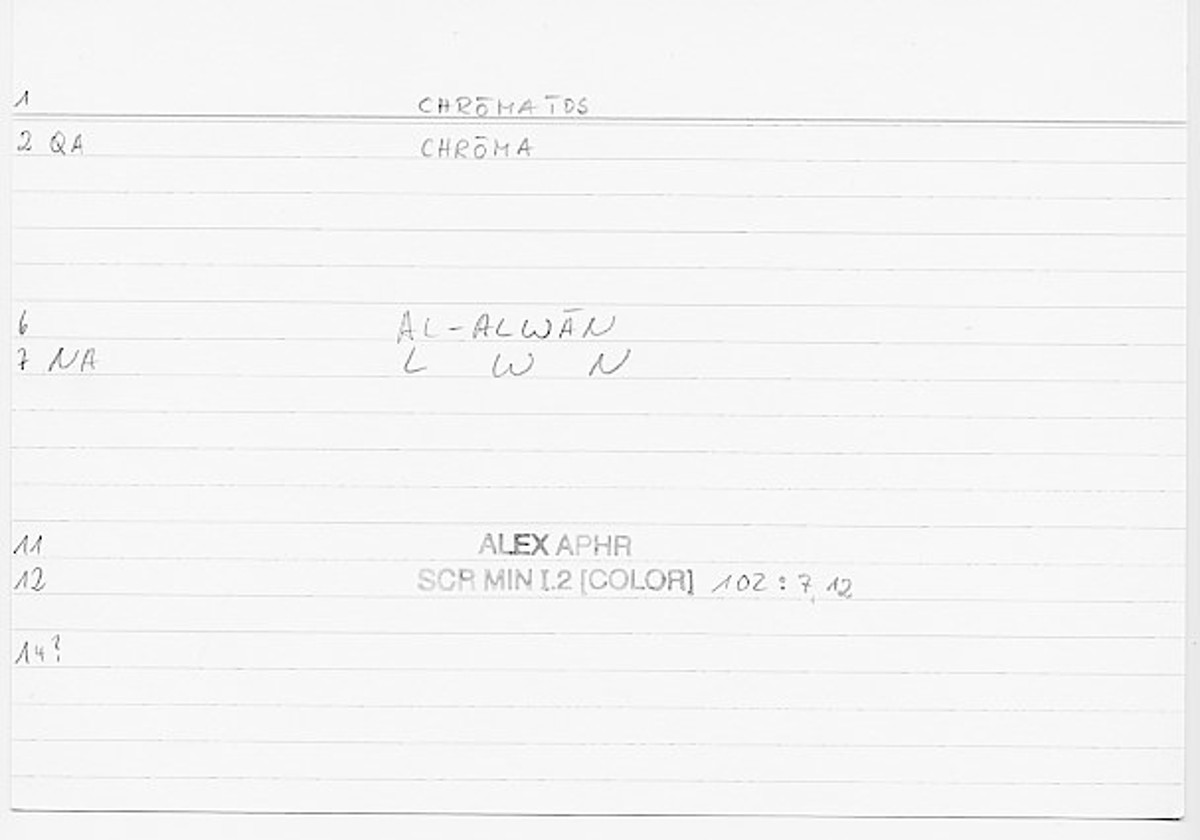 1 CHRŌMATOS
2 QA CHRŌMA
6 AL-ALWĀN
7 NA L W N
11 ALEX APHR
12 SCR MIN I.2 [COLOR] 102 : 7, 12
14?